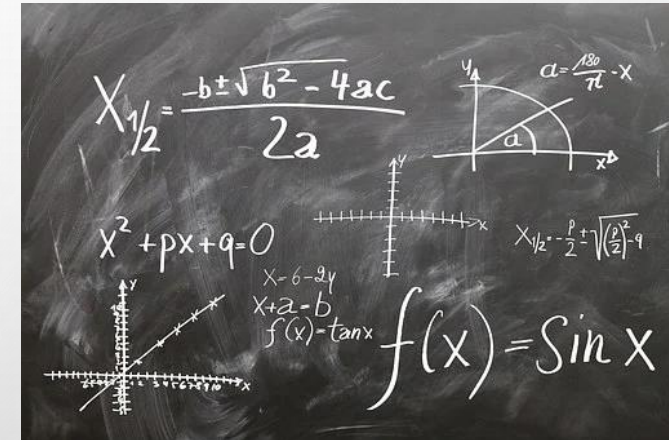 X₁/₂ = -b ± √b² - 4ac / 2a
y
a = 180/π · x
a
x
y
x
x² + px + q = 0
X₁/₂ = -p/2 ± √(p/2)² - q
X = 6 - 2y
x + a = b
f(x) = tan x
f(x) = Sin x
y
x